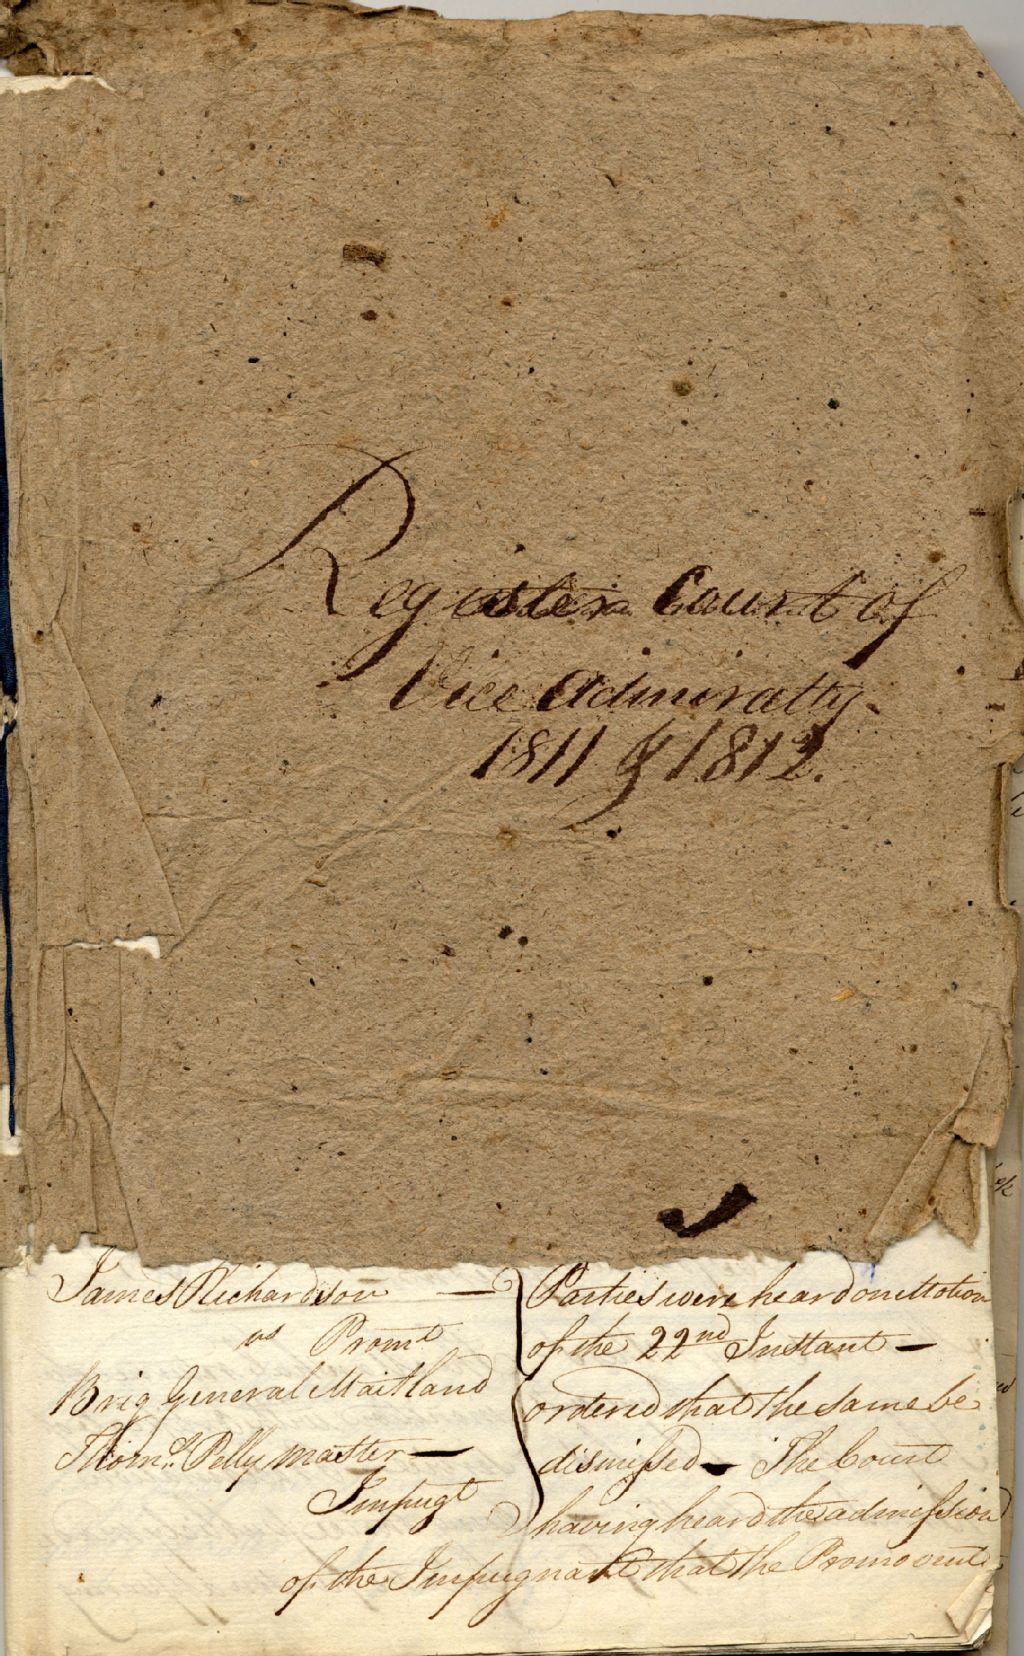 Register Court of
Vice Admiralty
1811 & 1812.
James Richardson —
vs Promt
Brig General Maitland
Thoms. Pelly master —
Impugt
Parties were heard on Motion
of the 22nd Instant —
ordered that the same be
dismissed — The Court
having heard the admission
of the Impugnant that the Promovent